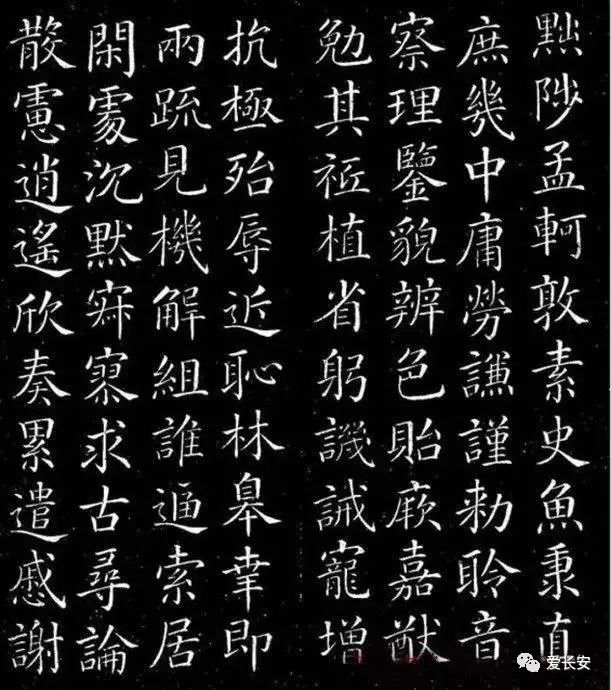 黜陟孟軻敦素史魚秉直
庶幾中庸勞謙謹勅聆音
察理鑒貌辨色貽厥嘉猷
勉其祗植省躬譏誡寵增
抗極殆辱近恥林皋幸即
兩疏見機解組誰逼索居
閑處沉默寂寥求古尋論
散慮逍遙欣奏累遣慼謝
爱长安